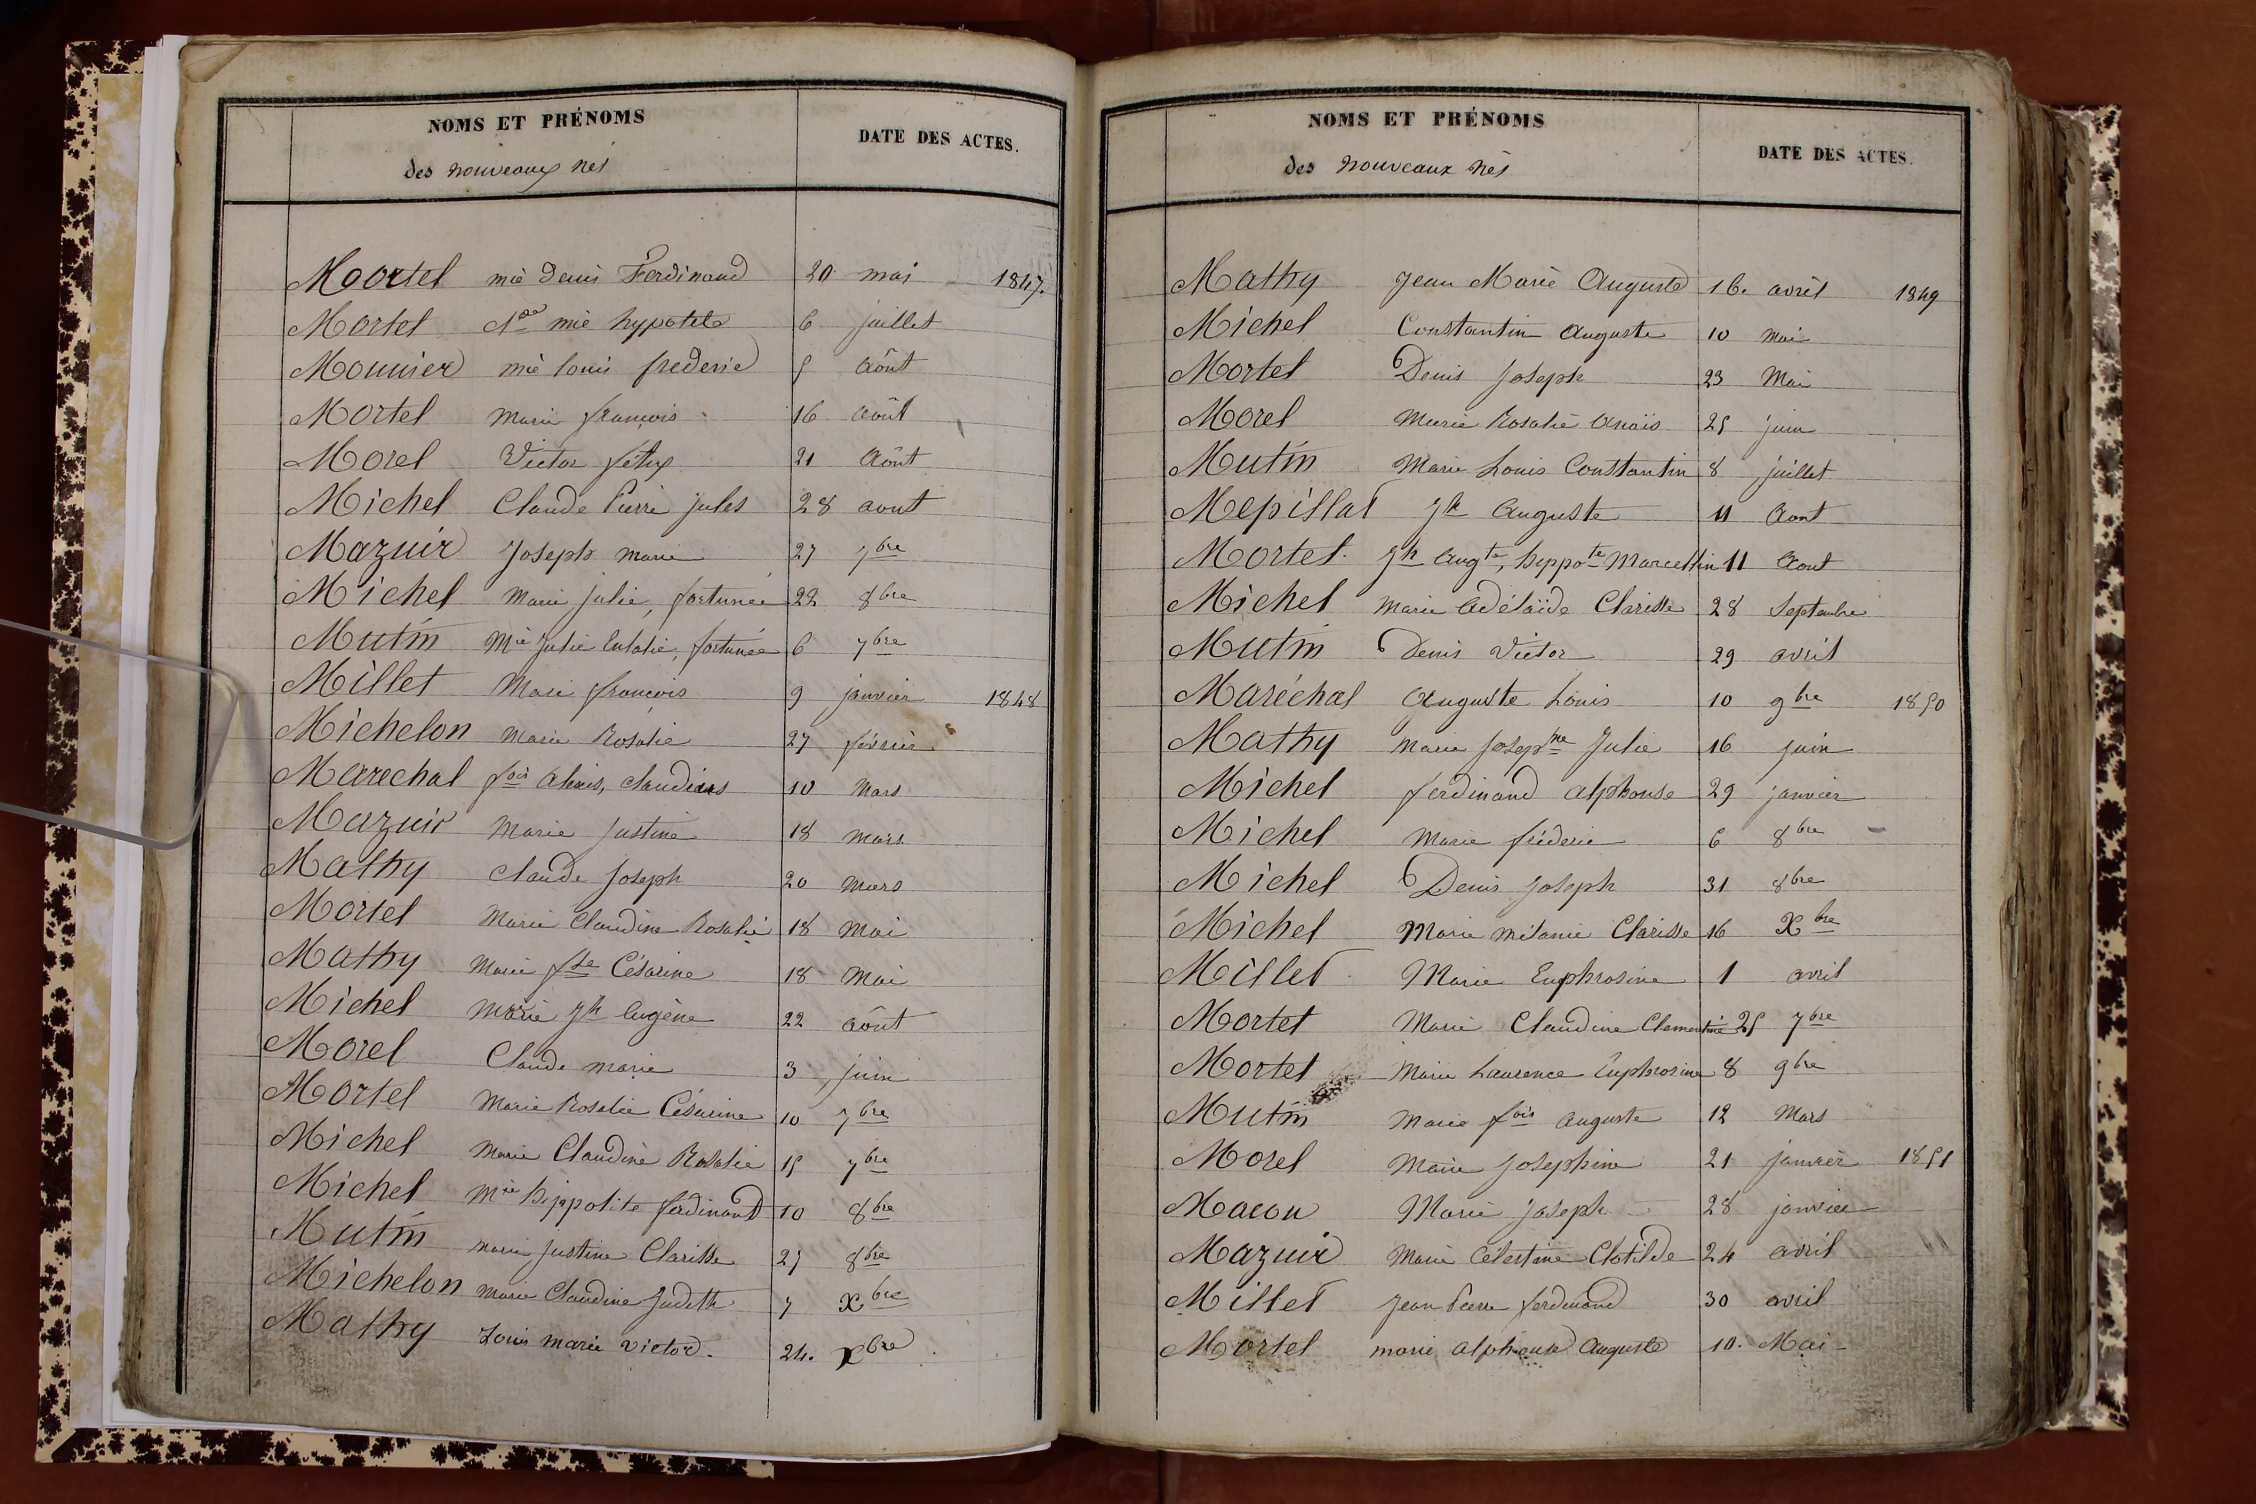 NOMS ET PRÉNOMS
des nouveaux nés
DATE DES ACTES.
Moortel mie denis Ferdinand 20 mai 1847.
Mortel mie hypolite 6 juillet
Mounier mie louis frederic 5 Aôut
Mortel Marie françois 16 Août
Morel Victor félix 21 Aôut
Michel Claude Pierre jules 28 aout
Mazuir Joseph marie 27 7bre
Michel Marie julie, fortunée 22 8bre
Mutin Mie Julie Eulalie, fortunée 6 7bre
Millet Marie françois 9 janvier 1848
Michelon Marie Rosalie 27 février
Marechal fois Alexis, claudius 10 Mars
Mazuir Marie Justine 18 mars
Mathy Claude Joseph 20 Mars
Mortel Marie Claudine Rosalie 18 Mai
Mathy Marie fse Césarine 18 Mai
Michel Marie Jh Eugène 22 Aôut
Morel Claude marie 3 juin
Mortel Marie Rosalie Césarine 10 7bre
Michel Marie Claudine Rosalie 15 7bre
Michel Mie hippolite ferdinand 10 8bre
Mutin Marie Justine Clarisse 25 8bre
Michelon Marie Claudine Judith 7 Xbre
Mathy Louis marie victor. 24. Xbre
NOMS ET PRÉNOMS
des nouveaux nés
DATE DES ACTES.
Mathy Jean Marie Auguste 16. avril 1849
Michel Constantin Auguste 10 Mai
Mortel Denis Joseph 23 Mai
Morel Marie Rosalie Anaïs 25 juin
Mutin Marie Louis Constantin 8 juillet
Mepillat Jh Auguste 11 Aout
Mortel. Jh Augte, hyppote Marcellin 11 Aout
Michel Marie Adélaïde Clarisse 28 Septembre
Mutin Denis Victor 29 avril
Maréchal Auguste Louis 10 9bre 1850
Mathy Marie Josepne Julie 16 juin
Michel ferdinand alphonse 29 janvier
Michel Marie fréderic 6 8bre
Michel Denis Joseph 31 8bre
Michel Marie mélanie Clarisse 16 Xbre
Millet Marie Euphrosine 1 avril
Mortel Marie Claudine Clementine 25 7bre
Mortel Marie Laurence Euphrosine 8 9bre
Mutin Marie fois auguste 12 Mars
Morel Marie Josephine 21 janvier 1851
Macon Marie Joseph 28 janvier
Mazuir Marie Célestine Clotilde 24 avril
Millet Jean Pierre ferdinand 30 avril
Mortel marie alphonse Auguste 10. Mai